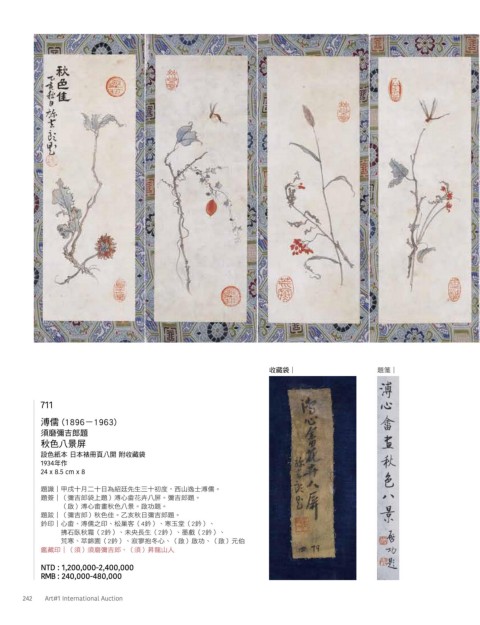 秋色佳
收藏袋｜
題箋｜
溥心畬畫秋色八景
啟功題
711
溥儒 (1896－1963)
須磨彌吉郎題
秋色八景屏
設色紙本 日本裱冊頁八開 附收藏袋
1934年作
24 x 8.5 cm x 8
題識｜甲戌十月二十日為紹廷先生三十初度，西山逸士溥儒。
題簽｜（彌吉郎袋上題）溥心畬花卉八屏。彌吉郎題。
（啟）溥心畬畫秋色八景。啟功題。
題跋｜（彌吉郎）秋色佳。乙亥秋日彌吉郎題。
鈐印｜心畬、溥儒之印、松巢客（4鈐）、寒玉堂（2鈐）、
佛石臥秋霜（2鈐）、未央長生（2鈐）、墨戲（2鈐）、
荒寒、萃錦園（2鈐）、寂寥抱冬心、（啟）啟功、（啟）元伯
鑑藏印｜（須）須磨彌吉郎、（須）昇龍山人
NTD : 1,200,000-2,400,000
RMB : 240,000-480,000
242 Art#1 International Auction